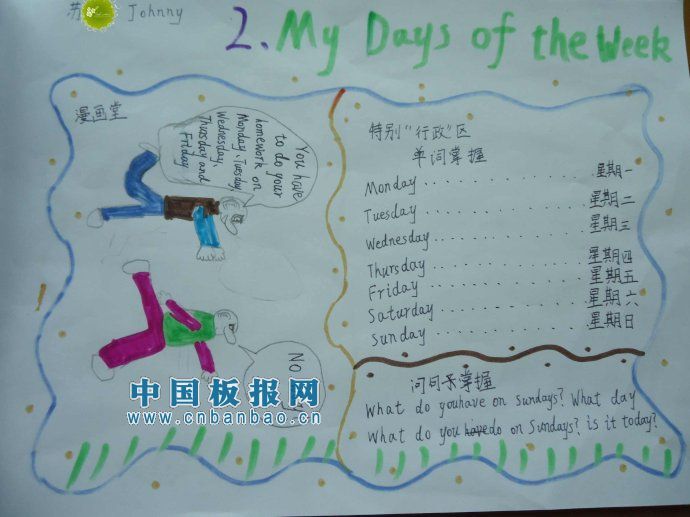 苏 Johnny
2. My Days of the Week
漫画堂
You have
to do your
homework on
Monday、Tuesday
Wednesday、
Thursday and
Friday
No
特别“行政”区
单词掌握
Monday............星期一
Tuesday............星期二
Wednesday............星期三
Thursday............星期四
Friday............星期五
Saturday............星期六
Sunday............星期日
问句掌握
What do youhave on sundays? What day
What do you have do on Sundays? is it today?
中国板报网
www.cnbanbao.cn